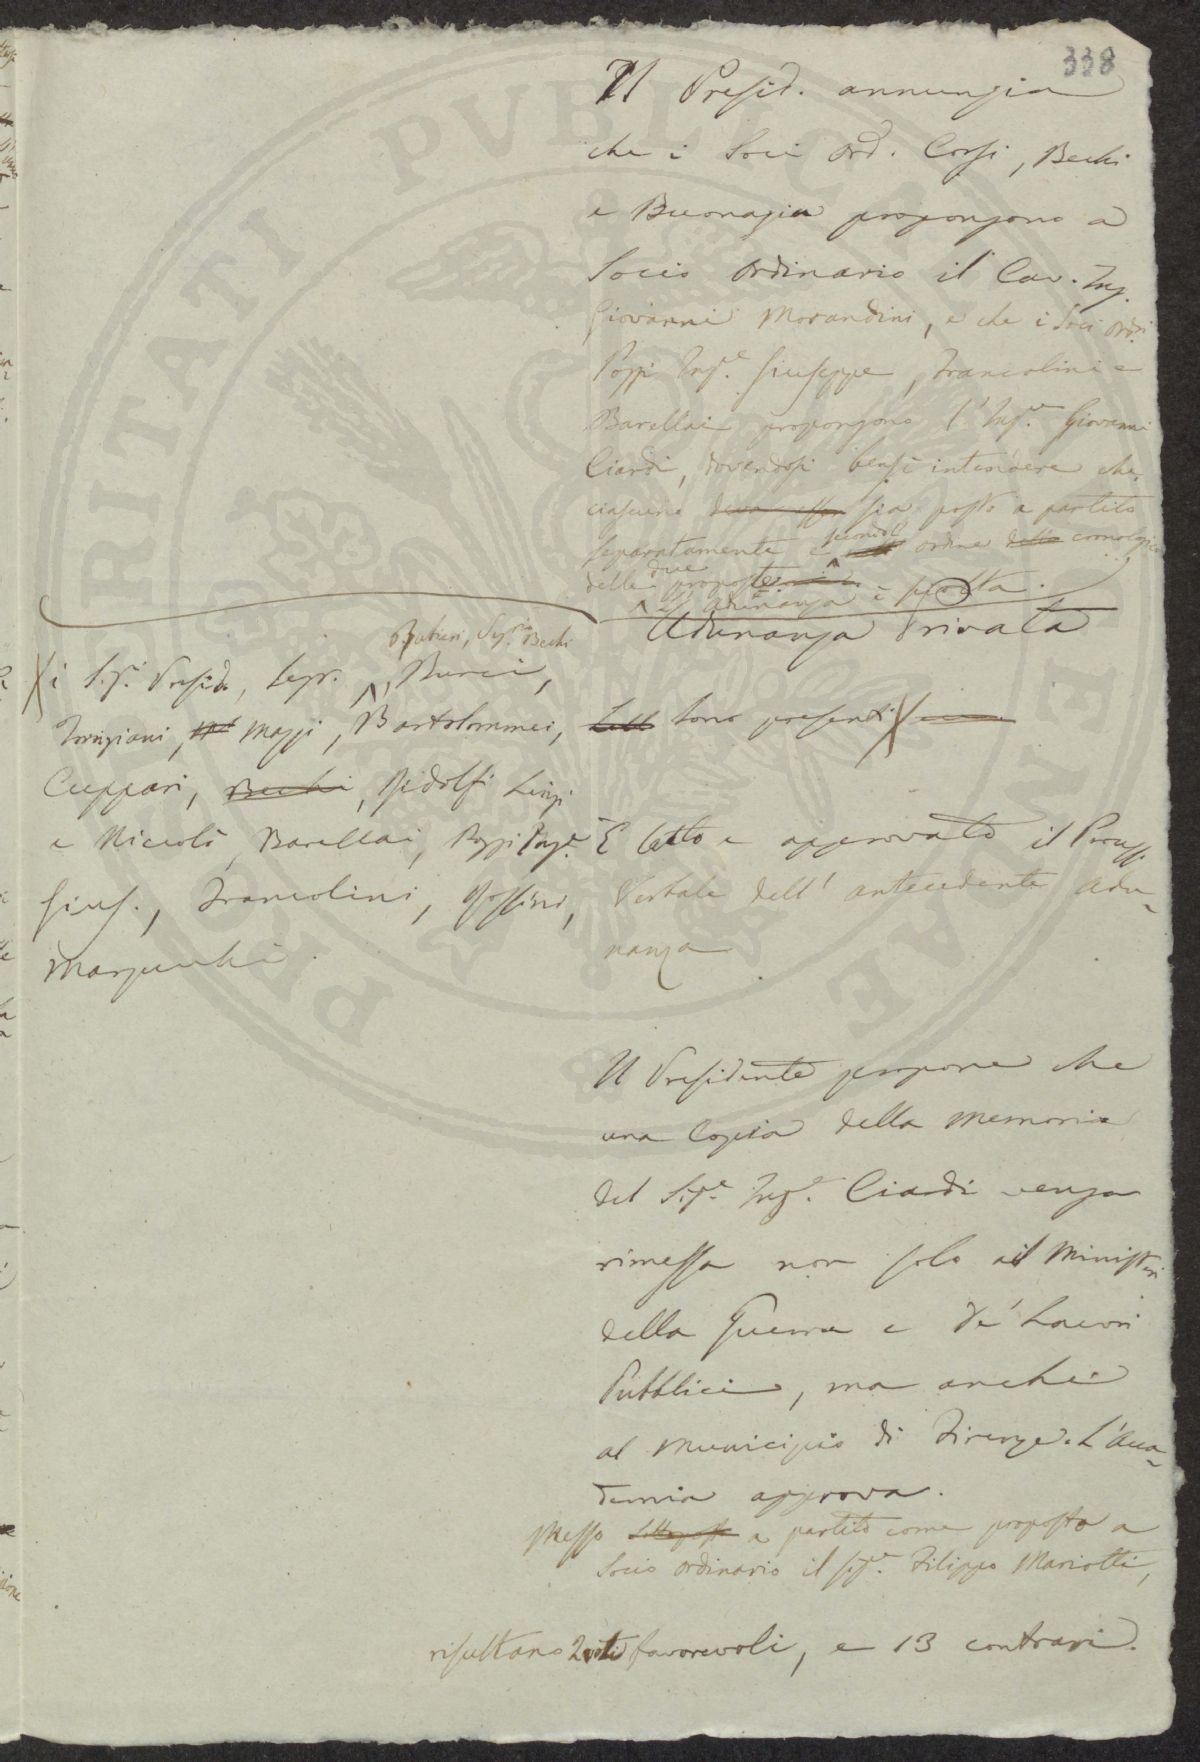 338
Il Presid. annunzia
che i Soci Ord. Corsi, Bechi
e Buonazia propongono a
Socio Ordinario il Cav. Ing.
Giovanni Morandini, e che i Soci Ord.
Poggi Ing.e Giuseppe, Francolini e
Barellai propongono l'Ing.e Giovanni
Ciardi, dovendosi bensì intendere che
ciascuno sia posto a partito
separatamente e secondo ordine cronologico
delle due proposte
L'adunanza è sciolta.
Adunanza Privata
Sono presenti X
X i Sig.i Presid., Segr., Rubieri, Seg.rio Bechi, Burci,
Torrigiani, Maggi, Bartolommei,
Cuppari, Bechi, Ridolfi Luigi
e Niccolò, Barellai, Poggi Ing.e
Gius., Francolini,
Marzucchi
È letto e approvato il Process
Verbale dell'antecedente Adu-
nanza
Il Presidente propone che
una Copia della Memoria
del Sig.e Ing.e Ciardi venga
rimessa non solo ai Ministeri
della Guerra e de' Lavori
Pubblici, ma anche
al Municipio di Firenze. L'Acca-
demia approva.
Messo a partito come proposto a
Socio ordinario il Sig.e Filippo Mariotti,
risultano 2 voti favorevoli, e 13 contrari.
PVBLICAE
PROSPERITATI